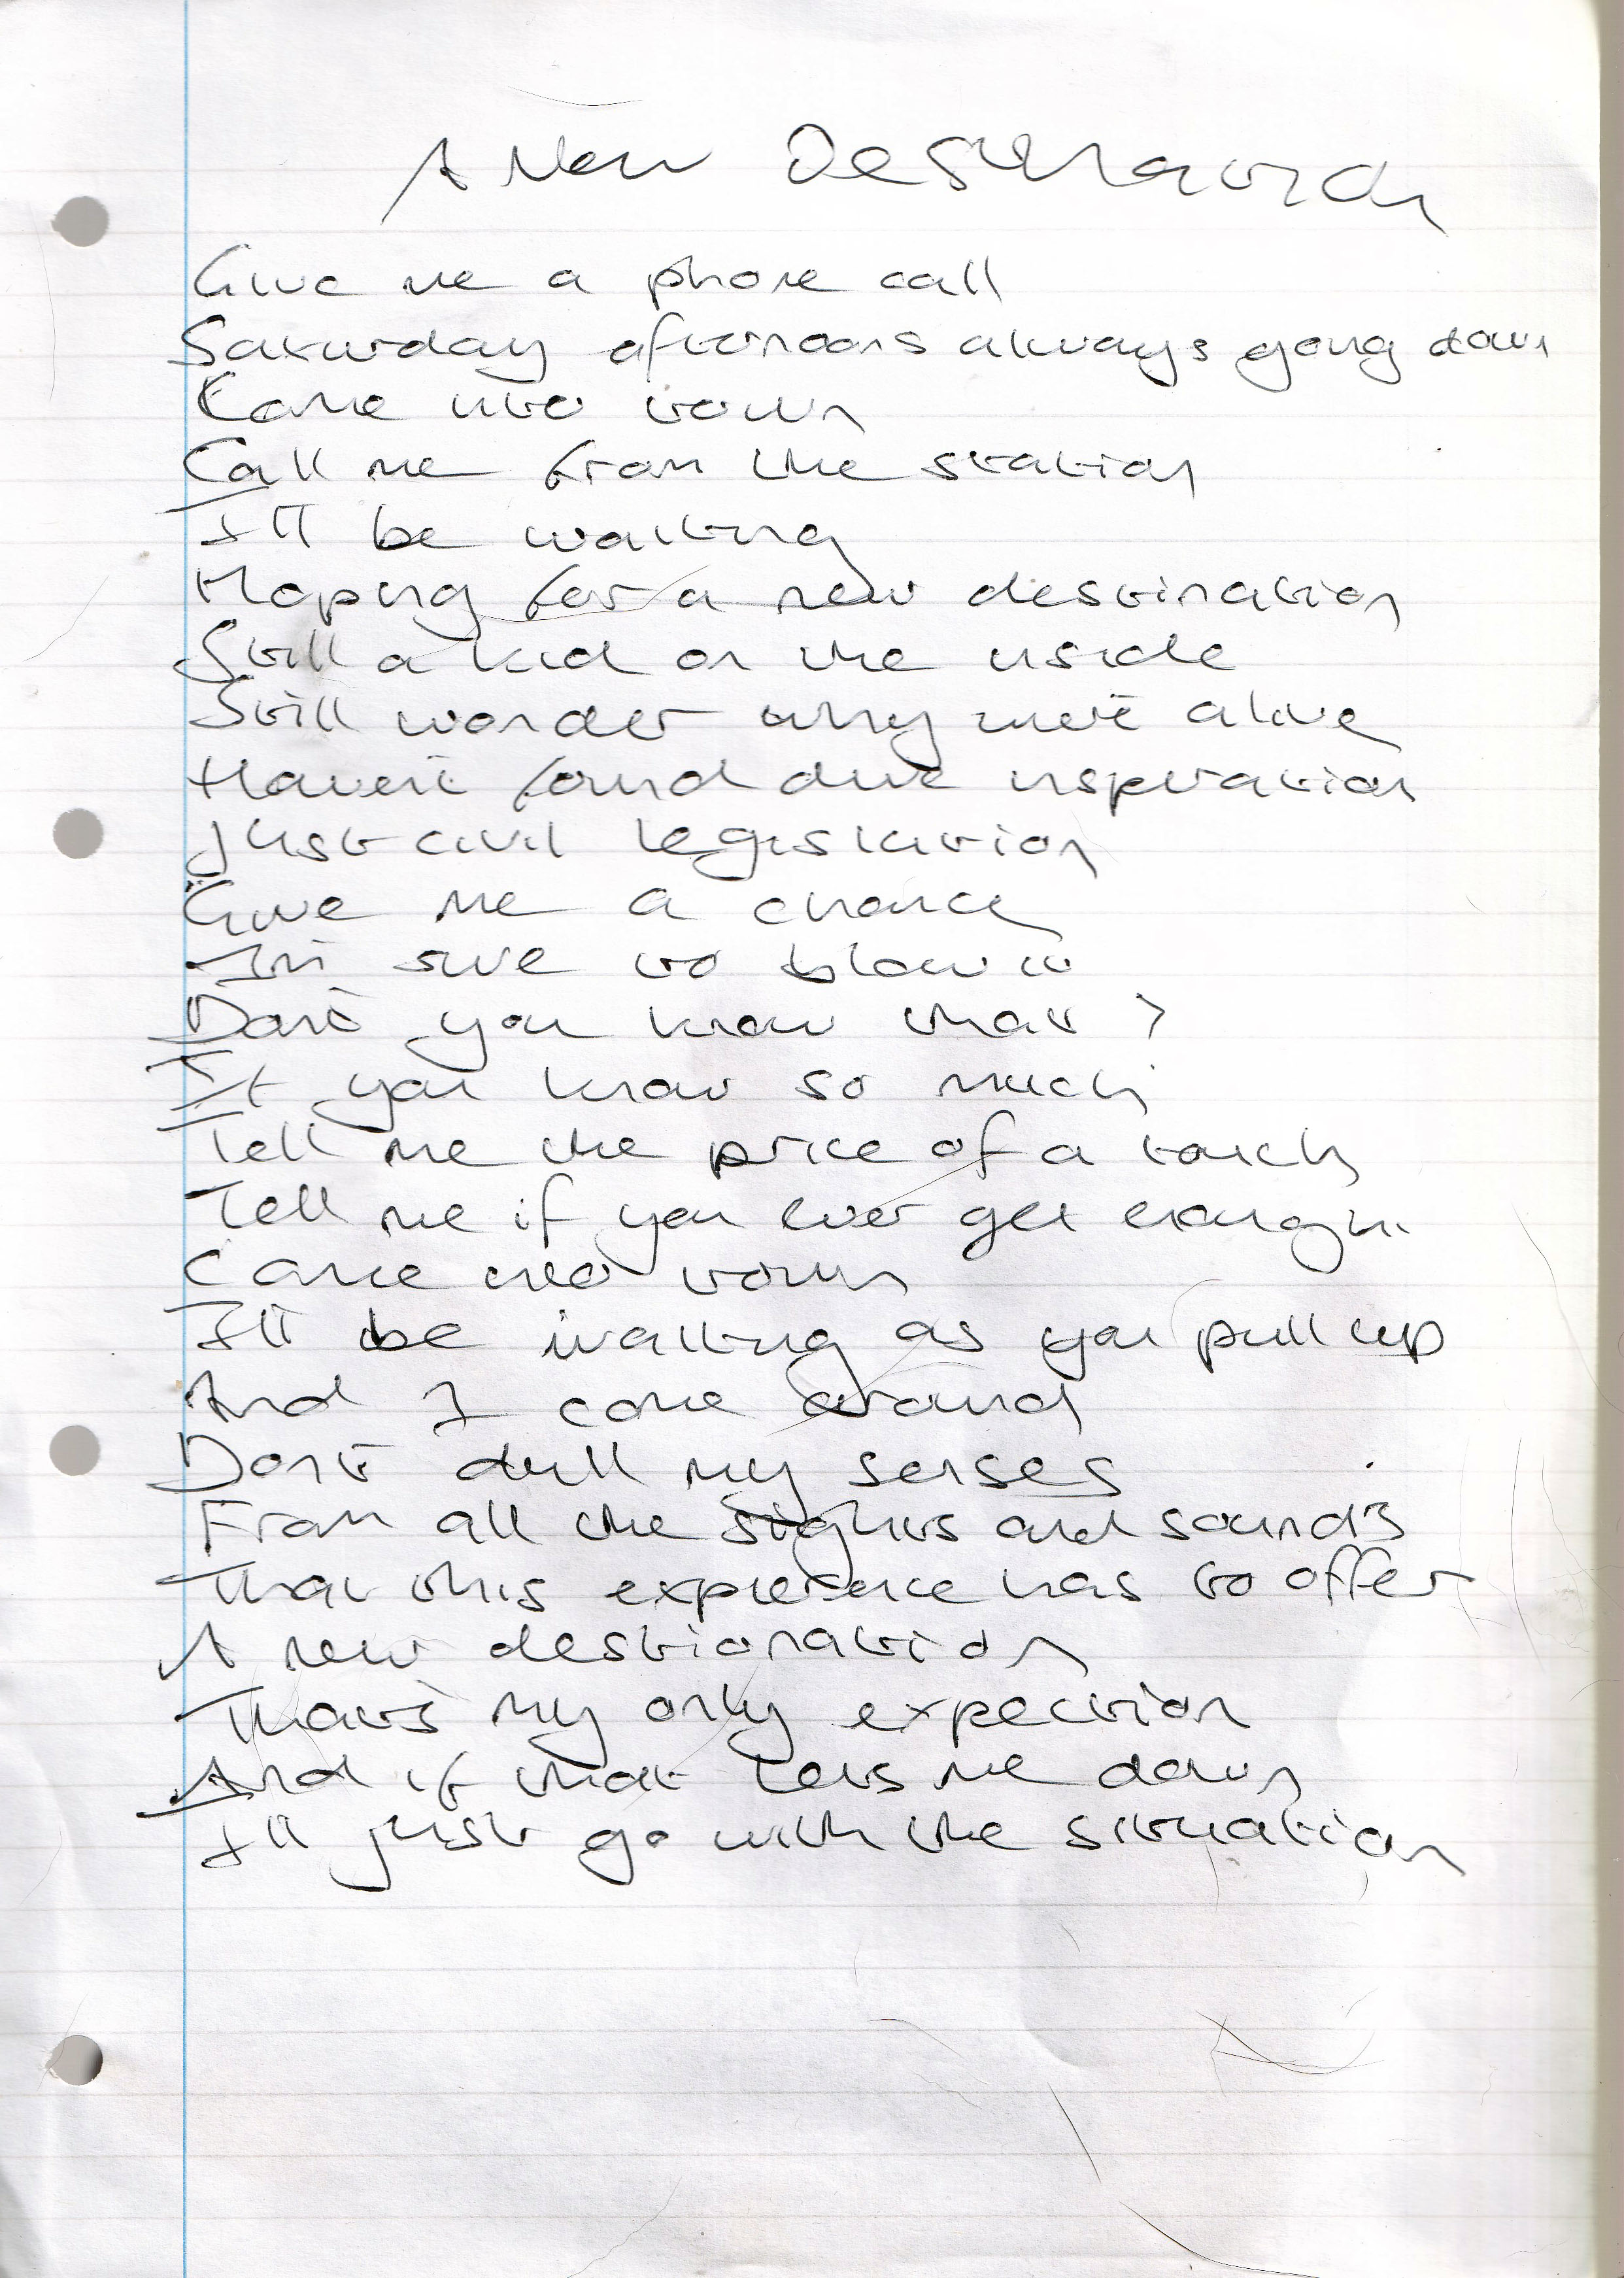 A New Destination
Give me a phone call
Saturday afternoons always going down
Come into town
Call me from the station
I'll be waiting
Hoping for a new destination
Still a kid on the inside
Still wonder why we're alive
Haven't found divine inspiration
Just civil legislation
Give me a chance
I'm sure to blow it
Don't you know that?
If you know so much
Tell me the price of a touch
Tell me if you ever get enough
Come into town
I'll be waiting as you pull up
And I come around
Don't dull my senses
From all the sights and sounds
That this experience has to offer
A new destionation
That's my only expection
And if that lets me down
I'll just go with the situation